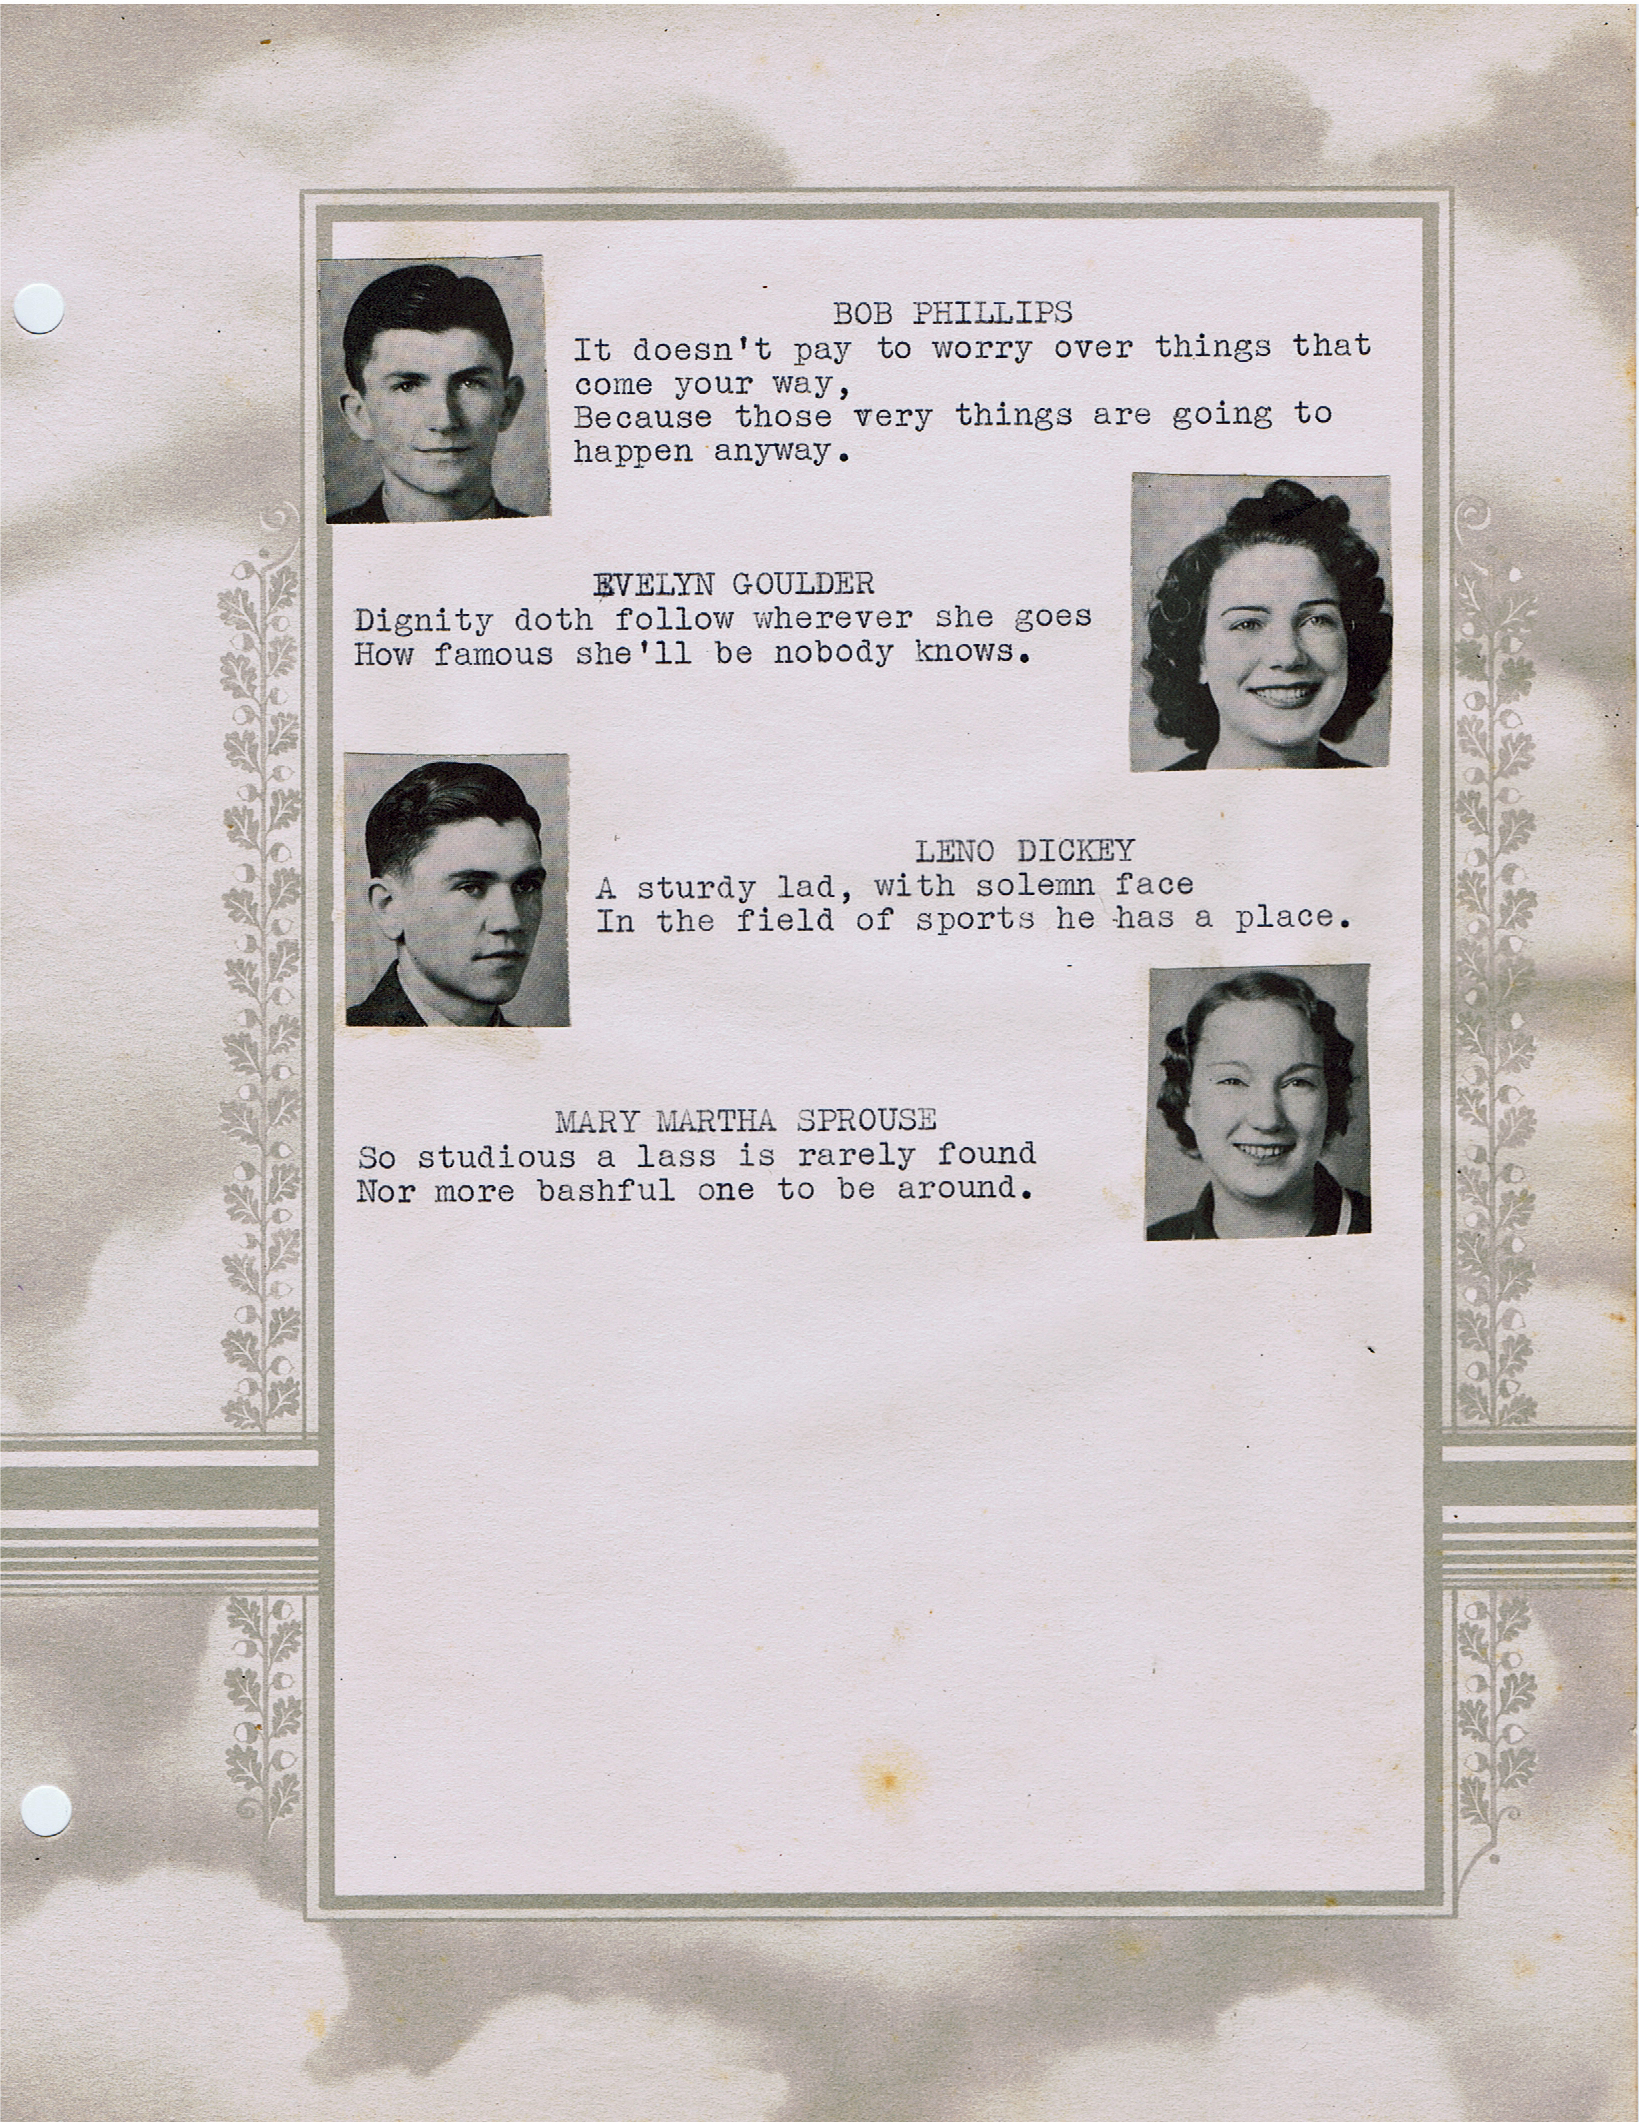 BOB PHILLIPS
It doesn't pay to worry over things that
come your way,
Because those very things are going to
happen anyway.
EVELYN GOULDER
Dignity doth follow wherever she goes
How famous she'll be nobody knows.
LENO DICKEY
A sturdy lad, with solemn face
In the field of sports he has a place.
MARY MARTHA SPROUSE
So studious a lass is rarely found
Nor more bashful one to be around.